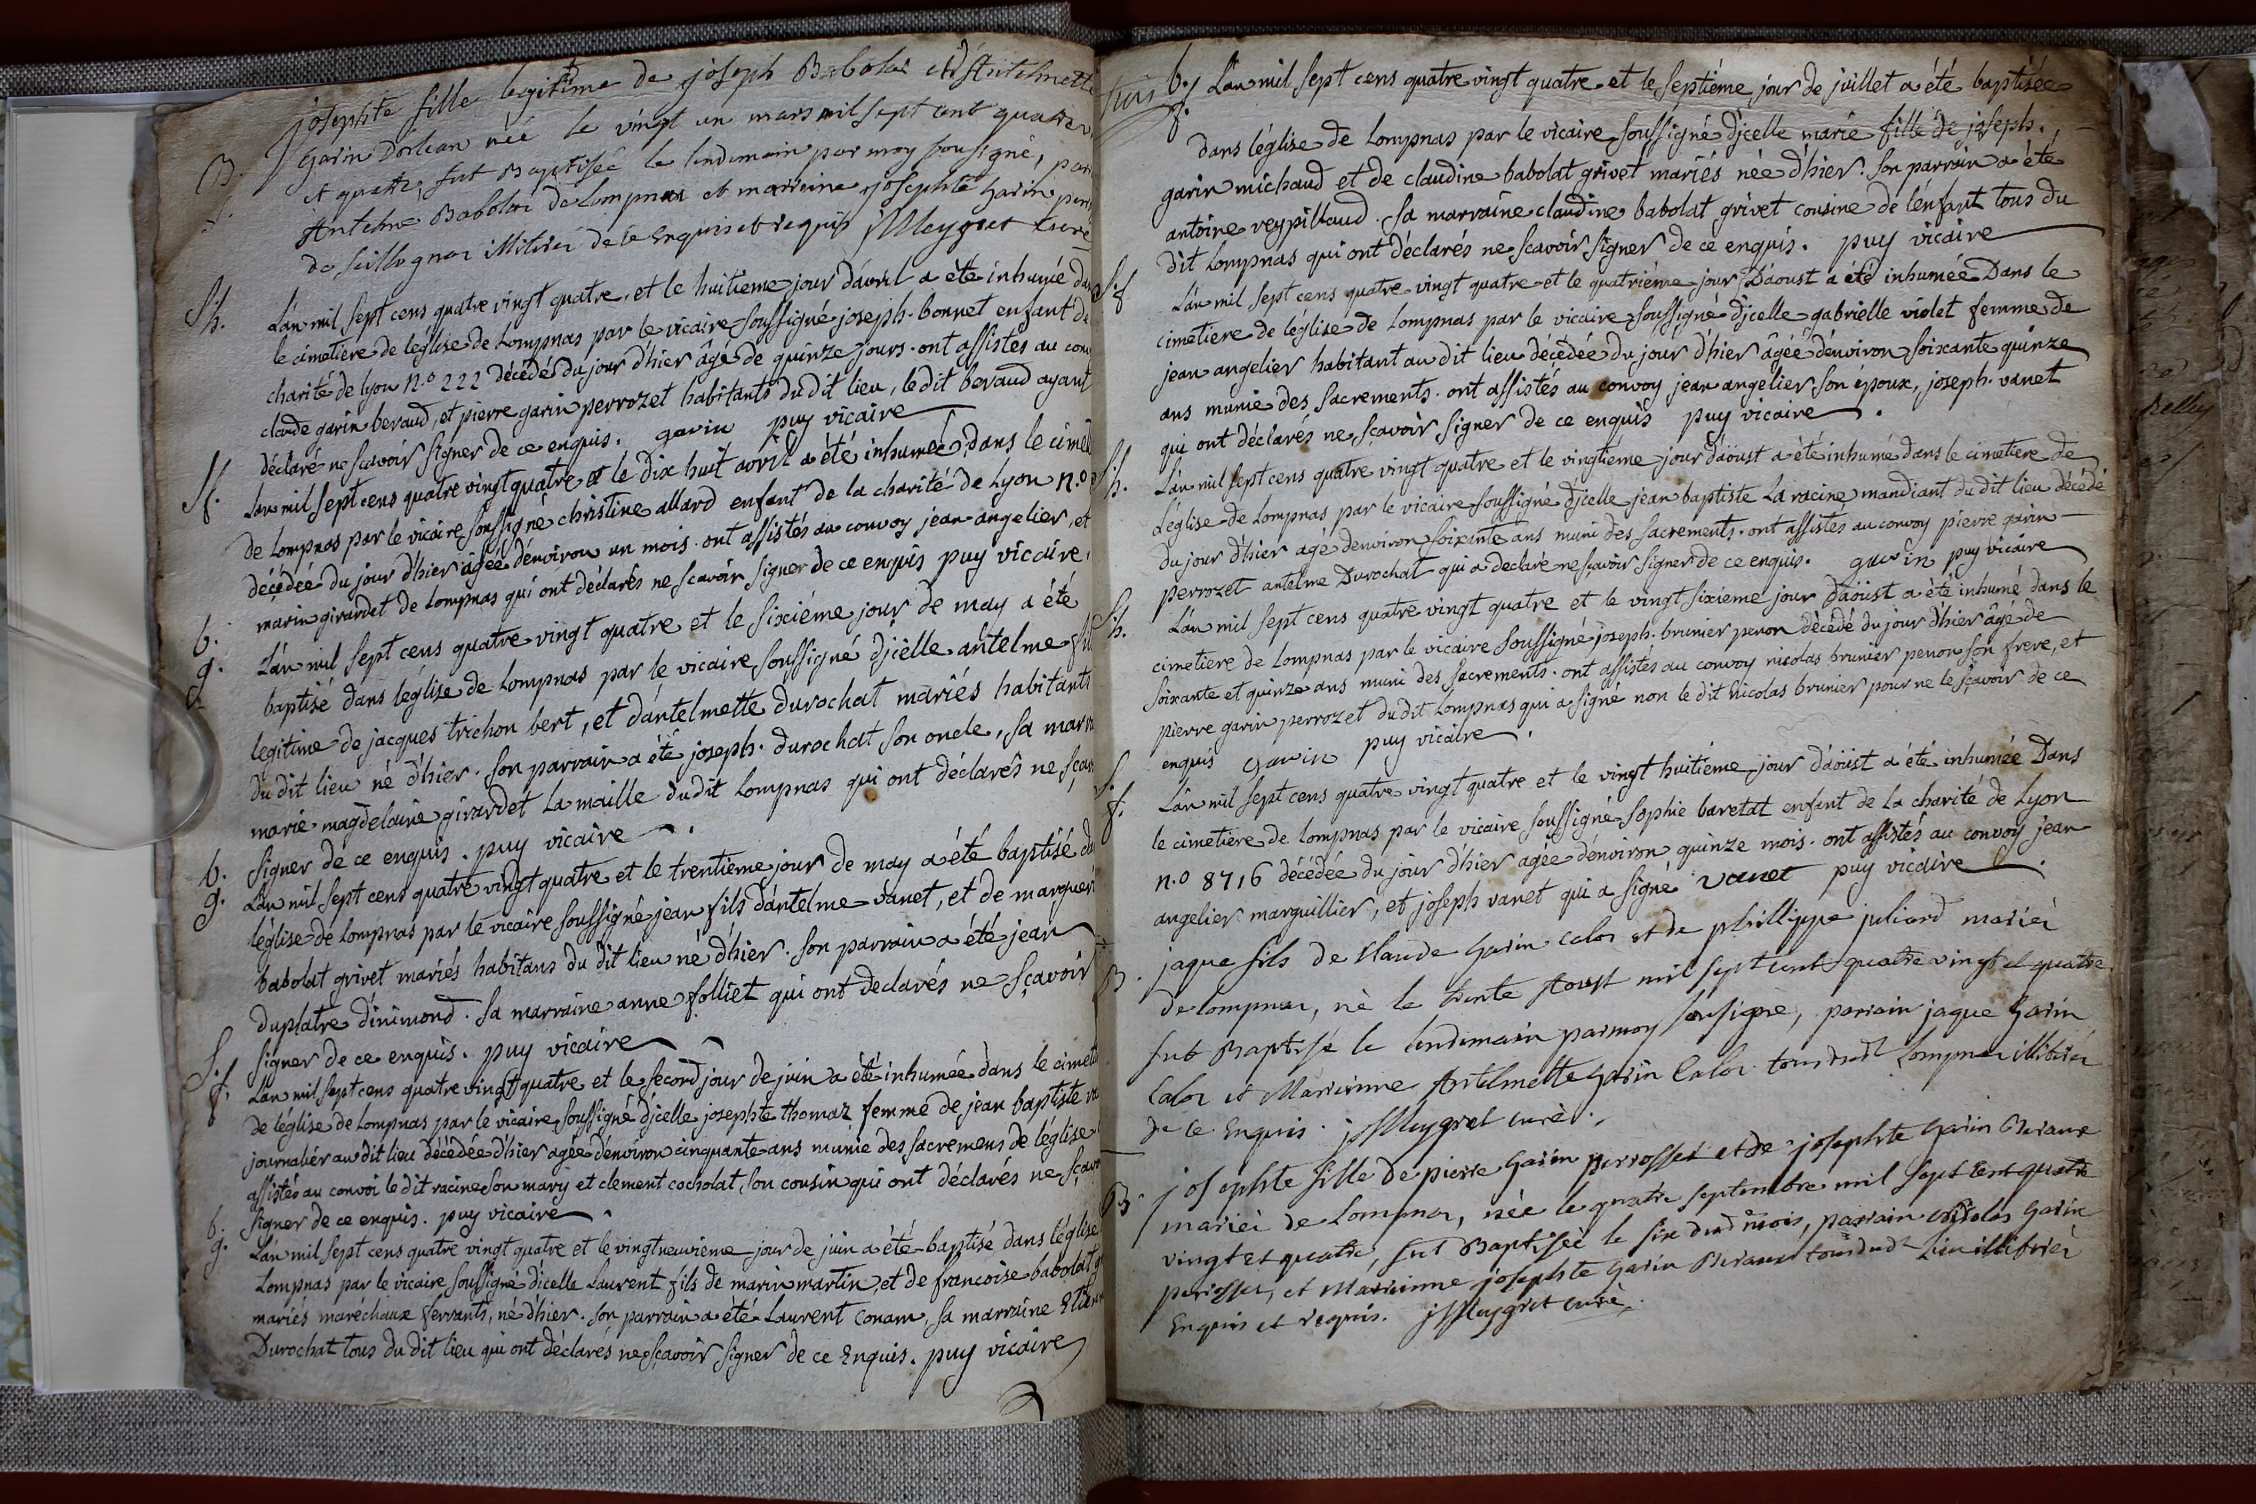 josephte fille legitime de joseph Babolat et d'Antelmette
B. garin Dorlean née le vingt un mars mil sept cent quatre vi
f. et quatre, fut Baptisée le lendemain par moy sousigné, par
Antelme Babolat de Lompnas et marreine josephte Garin perr
de Seillognat illitirés de ce Enquis et requis jMeygret curé
S.h. L'an mil sept cens quatre vingt quatre et le huitieme jour d'avril a été inhumé da
le cimetiere de l'église de Lompnas par le vicaire soussigné joseph bonnet enfant de
charité de Lyon N.o 222 décédé du jour d'hier âgé de quinze jours. ont assistés au con
claude garin beraud, et pierre garin perrozet habitants du dit lieu, le dit beraud ayant
déclaré ne sçavoir signer de ce enquis. garin puy vicaire
S.f. L'an mil sept cens quatre vingt quatre et le dix huit avril a été inhumée dans le cimet
de Lompnas par le vicaire soussigné christine allard enfant de la charité de Lyon N.o
décédée du jour d'hier âgée d'environ un mois. ont assistés au convoy jean angelier, et
marin girardet de Lompnas qui ont déclarés ne scavoir signer de ce enquis puy vicaire
b. L'an mil sept cens quatre vingt quatre et le sixiéme jour de may a été
g. baptisé dans l'église de Lompnas par le vicaire soussigné d'icelle antelme fil
legitime de jacques trichon bert, et d'antelmette durochat mariés habitants
du dit lieu né d'hier. son parrain a été joseph durochat son oncle, sa marr
marie magdelaine girardet La maille du dit Lompnas qui ont déclarés ne sçav
signer de ce enquis. puy vicaire
b. L'an mil sept cens quatre vingt quatre et le trentieme jour de may a été baptisé da
g. l'église de Lompnas par le vicaire soussigné jean fils d'antelme vanet, et de marguer
babolat grivet mariés habitans du dit lieu né d'hier. son parrain a été jean
duplatre d'inimond. sa marraine anne folliet qui ont declarés ne sçavoir
signer de ce enquis. puy vicaire
S.f. L'an mil sept cens quatre vingt quatre et le second jour de juin a été inhumée dans le cimet
de l'église de Lompnas par le vicaire soussigné d'icelle josephte thomaz femme de jean baptiste
journaliér au dit lieu décédée d'hier agée d'environ cinquante ans munie des sacremens de l'église
assistés au convoi le dit racine son mary et clement cocholat son cousin qui ont déclarés ne sçav
signer de ce enquis. puy vicaire
b. L'an mil sept cens quatre vingt quatre et le vingt neuvieme jour de juin a été baptisé dans l'église
g. Lompnas par le vicaire soussigné d'icelle Laurent fils de marin martin, et de francoise babolat g
mariés maréchaux ferrants, né d'hier. son parrain a été Laurent Conam, sa marraine Etien
Durochat tous du dit lieu qui ont déclarés ne sçavoir signer de ce Enquis. puy vicaire
b. L'an mil sept cens quatre vingt quatre et le septiéme jour de juillet a été baptisée
f. dans l'église de Lompnas par le vicaire soussigné d'icelle marie fille de joseph
garin michaud et de claudine babolat grivet mariés née d'hier. son parrain a été
antoine veypillaud. sa marraine claudine babolat grivet cousine de l'enfant tous du
dit Lompnas qui ont déclarés ne scavoir signer de ce enquis. puy vicaire
S.f L'an mil sept cens quatre vingt quatre et le quatriéme jour D'aoust a été inhumée Dans le
cimetiere de l'église de Lompnas par le vicaire soussigné d'icelle gabrielle violet femme de
jean angelier habitant au dit lieu décédée du jour d'hier âgée d'environ soixante quinze
ans munie des sacrements. ont assistés au convoy jean angelier son époux, joseph vanet
qui ont déclarés ne sçavoir signer de ce enquis puy vicaire.
S.h. L'an mil sept cens quatre vingt quatre et le vingtiéme jour d'aöust a été inhumé dans le cimetiere de
L'église de Lompnas par le vicaire soussigné d'icelle jean baptiste La racine mandiant du dit lieu décédé
du jour d'hier agé d'environ soixante ans muni des sacrements. ont assistés au convoy pierre garin
perrozet antelme Durochat qui a declaré ne sçavoir signer de ce enquis. garin puy vicaire
S.h. L'an mil sept cens quatre vingt quatre et le vingt sixieme jour d'aöust a été inhumé dans le
cimetiere de Lompnas par le vicaire soussigné joseph brunier penon décédé du jour d'hier âgé de
soixante et quinze ans muni des sacrements. ont assistés au convoy nicolas brunier penon son frere, et
pierre garin perrozet du dit Lompnas qui a signé non le dit nicolas brunier pour ne le sçavoir de ce
enquis garin puy vicaire.
S. L'an mil sept cens quatre vingt quatre et le vingt huitiéme jour d'aöust a été inhumée Dans
f. le cimetiere de Lompnas par le vicaire soussigné sophie baretat enfant de la charité de Lyon
N.o 8716 décédée du jour d'hier agée d'environ quinze mois. ont assistés au convoy jean
angelier marguillier, et joseph vanet qui a signé vanet puy vicaire.
B. jaque fils de Claude Garin Caloz et de phillippe juliard mariés
de Lompnas, né le trente Aoust mil sept cent quatre vingt et quatre
fut Baptisé le lendemain par moy sousigné, parrain jaque Garin
Caloz et Marreinne Antelmette Garin Caloz tous dudt Lompnas illitirés
de ce Enquis. jMeygret curé.
B. josephte fille de pierre Garin perrosset et de josephte Garin Beraux
mariés de Lompnas, née le quatre septembre mil sept cent quatre
vingt et quatre, fut Baptiséé le six dud mois, parrain Nicolas Garin
perosset, et Marreinne josephte Garin Beraux tous dudt Lieu illitirés
Enquis et requis. jMeygret curé.